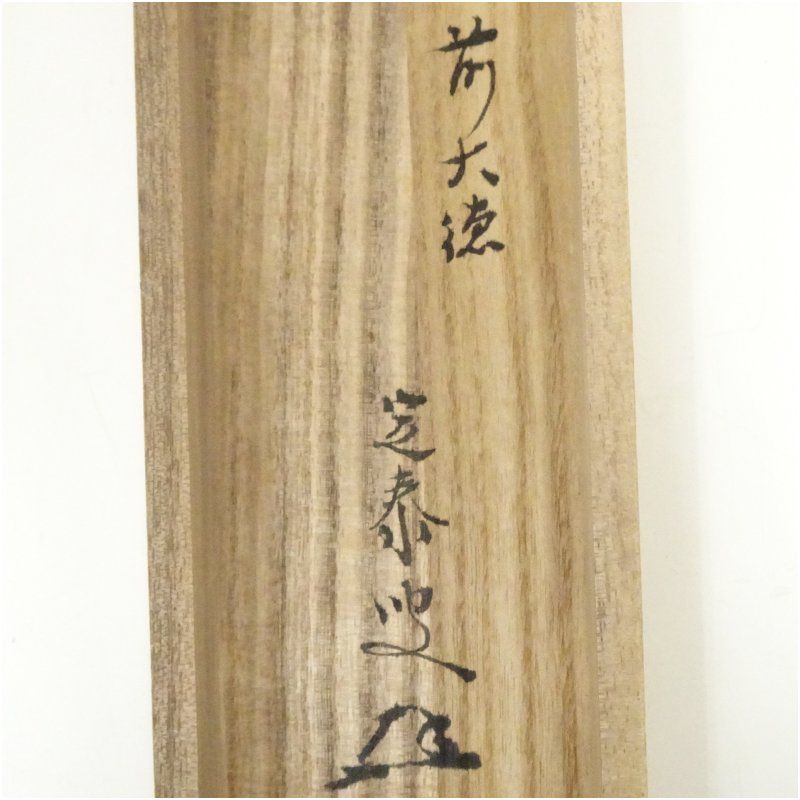 前大徳
宗泰叟